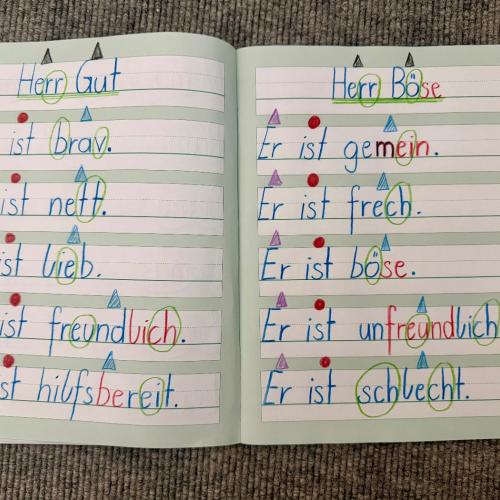 Herr Gut
ist brav.
ist nett.
ist lieb.
ist freundlich.
ist hilfsbereit.
Herr Böse
Er ist gemein.
Er ist frech.
Er ist böse.
Er ist unfreundlich
Er ist schlecht.